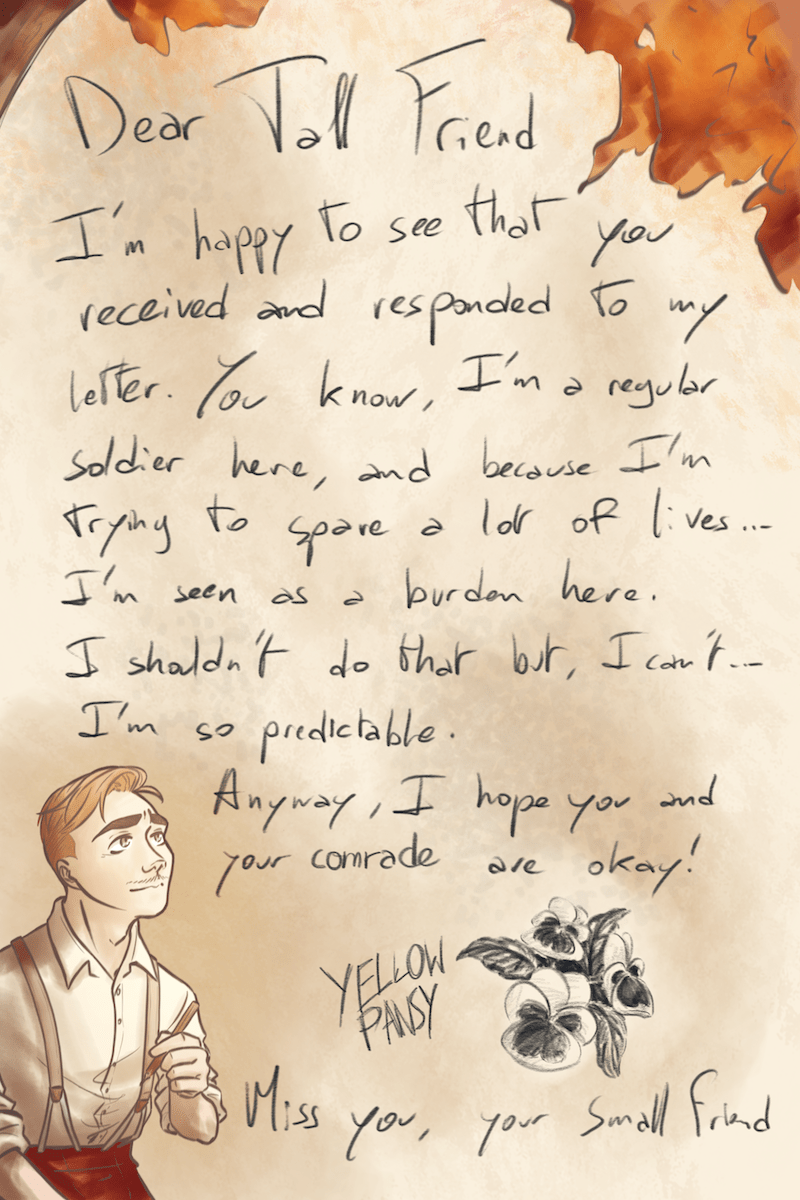 Dear Tall Friend
I'm happy to see that you
received and responded to my
letter. You know, I'm a regular
soldier here, and because I'm
trying to spare a lot of lives...
I'm seen as a burden here.
I shouldn't do that but, I can't...
I'm so predictable.
Anyway, I hope you and
your comrade are okay!
YELLOW
PANSY
Miss you, your small friend